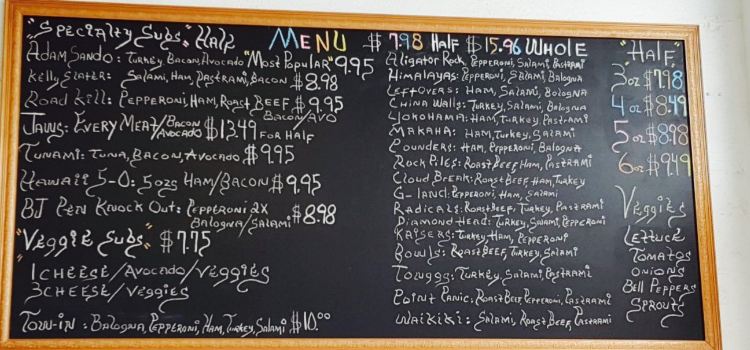 "Specialty Subs" Half
Adam Sando: Turkey Bacon Avocado "Most Popular" 9.95
Kelly Slater: Salami, Ham, Pastrami, Bacon $8.98
Road Kill: Pepperoni, Ham, Roast Beef, Bacon/Avo $9.95
Jaws: Every Meat/Bacon Avocado $13.49 for Half
Tunami: Tuna, Bacon, Avocado $9.95
Hawaii 5-0: 5ozs Ham/Bacon $9.95
BJ Pen Knock Out: Pepperoni 2x Balogna/Salami $8.98
"Veggie Subs" $7.75
1 Cheese/Avocado/Veggies
3 Cheese/Veggies
Tow-in: Balogna, Pepperoni, Ham, Turkey, Salami $10.00
Menu $7.98 Half $15.96 Whole
Aligator Rock Pepperoni, Salami, Pastrami
Himalayas: Pepperoni, Salami, Balogna
Leftovers: Ham, Salami, Balogna
China Walls: Turkey, Salami, Balogna
Yokohama: Ham, Turkey, Pastrami
Makaha: Ham, Turkey, Salami
Pounders: Ham, Pepperoni, Balogna
Rock Piles: Roast Beef, Ham, Pastrami
Cloud Break: Roast Beef, Ham, Turkey
G-land: Pepperoni, Ham, Salami
Radicals: Roast Beef, Turkey, Pastrami
Diamond Head: Turkey, Salami, Pepperoni
Kaisers: Turkey, Ham, Pepperoni
Bowls: Roast Beef, Turkey, Salami
Turkey, Salami, Pastrami
Point Panic: Roast Beef, Pepperoni, Pastrami
Waikiki: Salami, Roast Beef, Pastrami
"Half"
3oz $7.98
4oz $8.49
5oz $8.98
6oz $9.49
Veggies
Lettuce
Tomatos
Onions
Bell Peppers
Sprouts